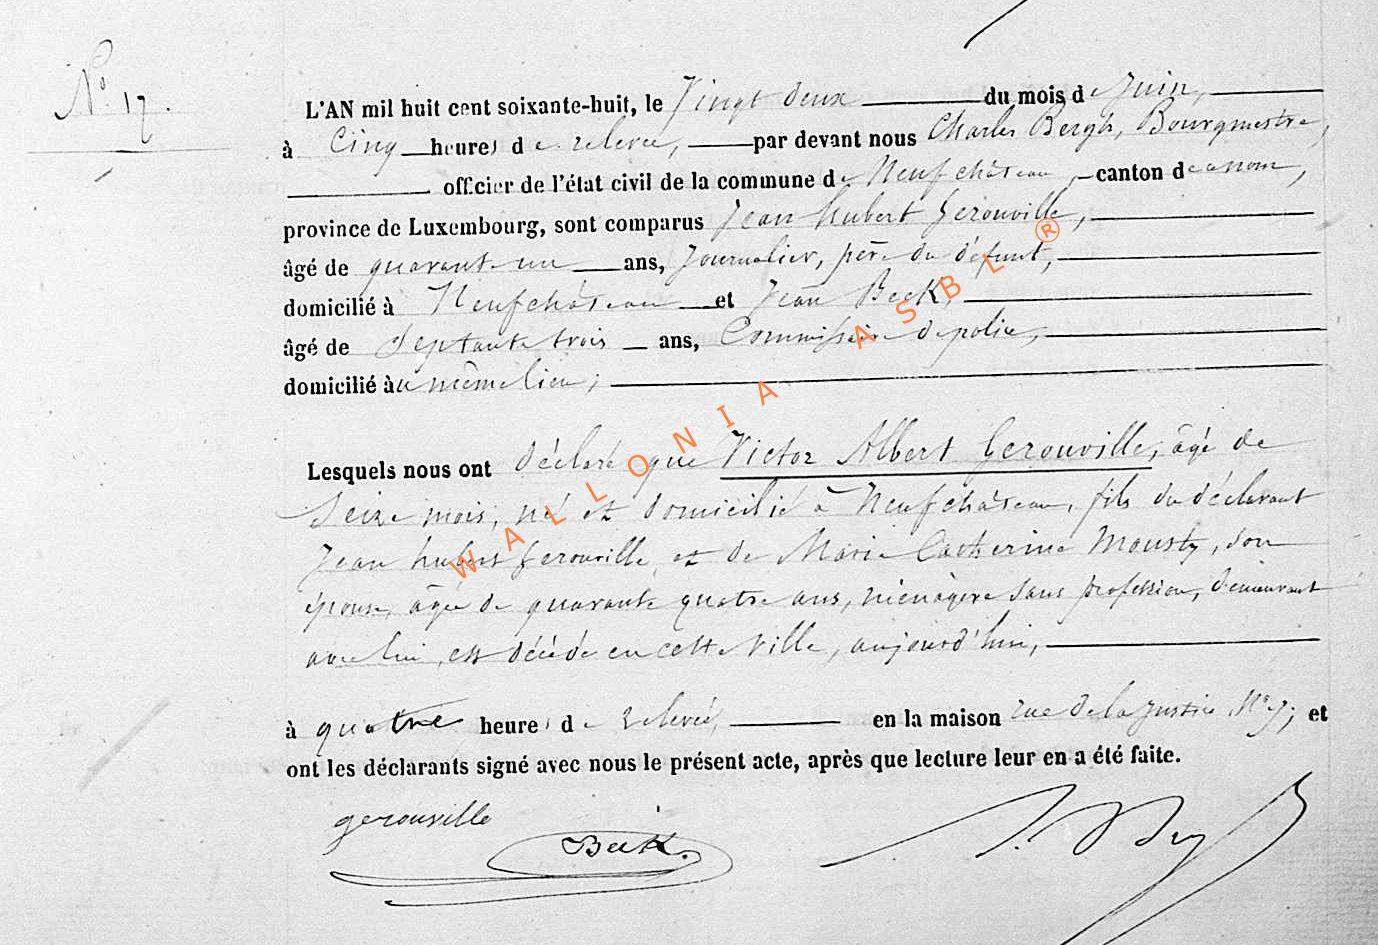 N° 17.
L'AN mil huit cent soixante-huit, le Vingt deux du mois de Juin,
à Cinq heures de relevée, par devant nous Charles Bergh, Bourgmestre,
officier de l'état civil de la commune de Neufchâteau, canton de ce nom,
province de Luxembourg, sont comparus Jean hubert Gerouville,
âgé de quarante-un ans, Journalier, père du défunt,
domicilié à Neufchâteau et Jean Beck,
âgé de Septante trois ans, Commissaire de police,
domicilié au même lieu;
Lesquels nous ont déclaré que Victor Albert Gerouville, âgé de
Seize mois, né et domicilié à Neufchâteau, fils du déclarant
Jean hubert Gerouville, et de Marie Catherine Mousty, son
épouse, âgée de quarante quatre ans, ménagère sans profession, demeurant
avec lui, est décédé en cette Ville, aujourd'hui,
à quatre heures de relevée, en la maison rue de la Justice N° 7; et
ont les déclarants signé avec nous le présent acte, après que lecture leur en a été faite.
gerouville
Beck
WALLONIA ASBL ®